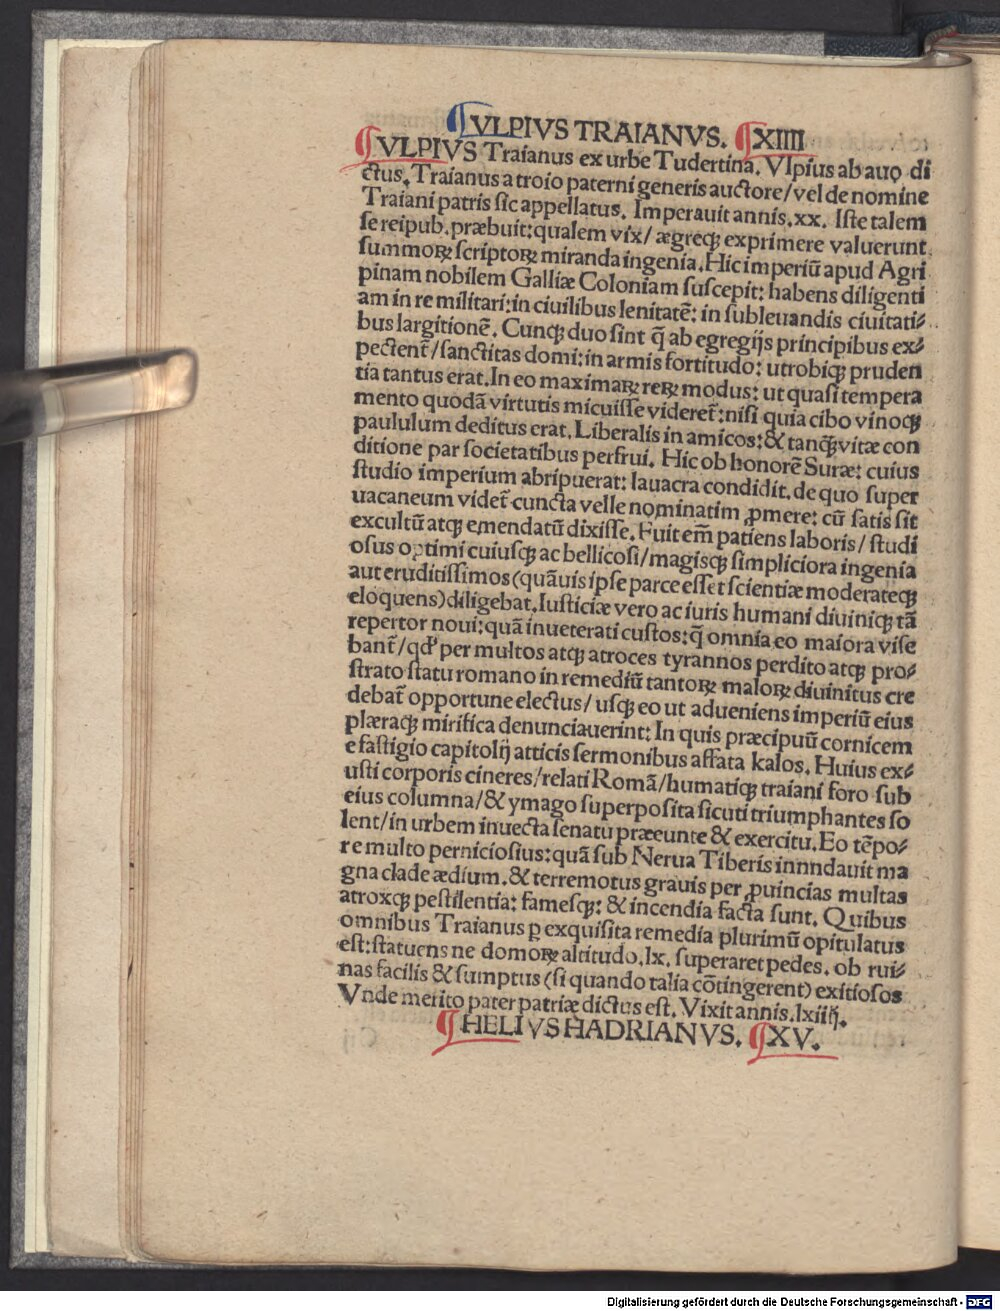 ¶VLPIVS TRAIANVS. ¶XIIII
¶VLPIVS Traianus ex urbe Tudertina. Vlpius ab auo di
ctus. Traianus a troio paterni generis auctore/vel de nomine
Traiani patris sic appellatus. Imperauit annis.xx. Iste talem
se reipub. præbuit:qualem vix/ ægreqȝ exprimere valuerunt
summoꝝ scriptoꝝ miranda ingenia. Hic imperiū apud Agri
pinam nobilem Galliæ Coloniam suscepit: habens diligenti
am in re militari:in ciuilibus lenitatē: in subleuandis ciuitati⸗
bus largitionē. Cunqȝ duo sint q̄ ab egregijs principibus ex⸗
pectent̄/sanctitas domi:in armis fortitudo: utrobiqȝ pruden
tia tantus erat. In eo maximaꝝ reꝝ modus: ut quasi tempera
mento quodā virtutis micuisse videret̄:nisi quia cibo vinoqȝ
paululum deditus erat. Liberalis in amicos:& tanqȝ vitæ con
ditione par societatibus perfrui. Hic ob honorē Suræ: cuius
studio imperium abripuerat: lauacra condidit. de quo super
uacaneum videt̄ cuncta velle nominatim ꝓmere: cū satis sit
excultū atqȝ emendatū dixisse. Fuit em̄ patiens laboris/ studi
osus optimi cuiusqȝ ac bellicosi/magisqȝ simpliciora ingenia
aut eruditissimos(quāuis ipse parce esset scientiæ moderateqȝ
eloquens)diligebat. Iusticiæ vero ac iuris humani diuiniqȝ tā
repertor noui:quā inueterati custos:q̄ omnia eo maiora vise
bant̄/qd' per multos atqȝ atroces tyrannos perdito atqȝ pro⸗
strato statu romano in remediū tantoꝝ maloꝝ diuinitus cre
debat̄ opportune electus/ usqȝ eo ut adueniens imperiū eius
plæraqȝ mirifica denunciauerint: In quis præcipuū cornicem
e fastigio capitolij atticis sermonibus affata kalos. Huius ex⸗
usti corporis cineres/relati Romā/humatiqȝ traiani foro sub
eius columna/& ymago superposita sicuti triumphantes so
lent/in urbem inuecta senatu præeunte & exercitu. Eo tēpo⸗
re multo perniciosius:quā sub Nerua Tiberis innndauit ma
gna clade ædium. & terremotus grauis per ꝓuincias multas
atroxqȝ pestilentia: famesqȝ: & incendia facta sunt. Quibus
omnibus Traianus ꝑ exquisita remedia plurimū opitulatus
est:statuens ne domoꝝ altitudo.lx. superaret pedes. ob rui⸗
nas facilis & sumptus (si quando talia cōtingerent) exitiosos
Vnde merito pater patriæ dictus est. Vixit annis.lxiiij.
¶HELIVS HADRIANVS. ¶XV.
Digitalisierung gefördert durch die Deutsche Forschungsgemeinschaft - DFG